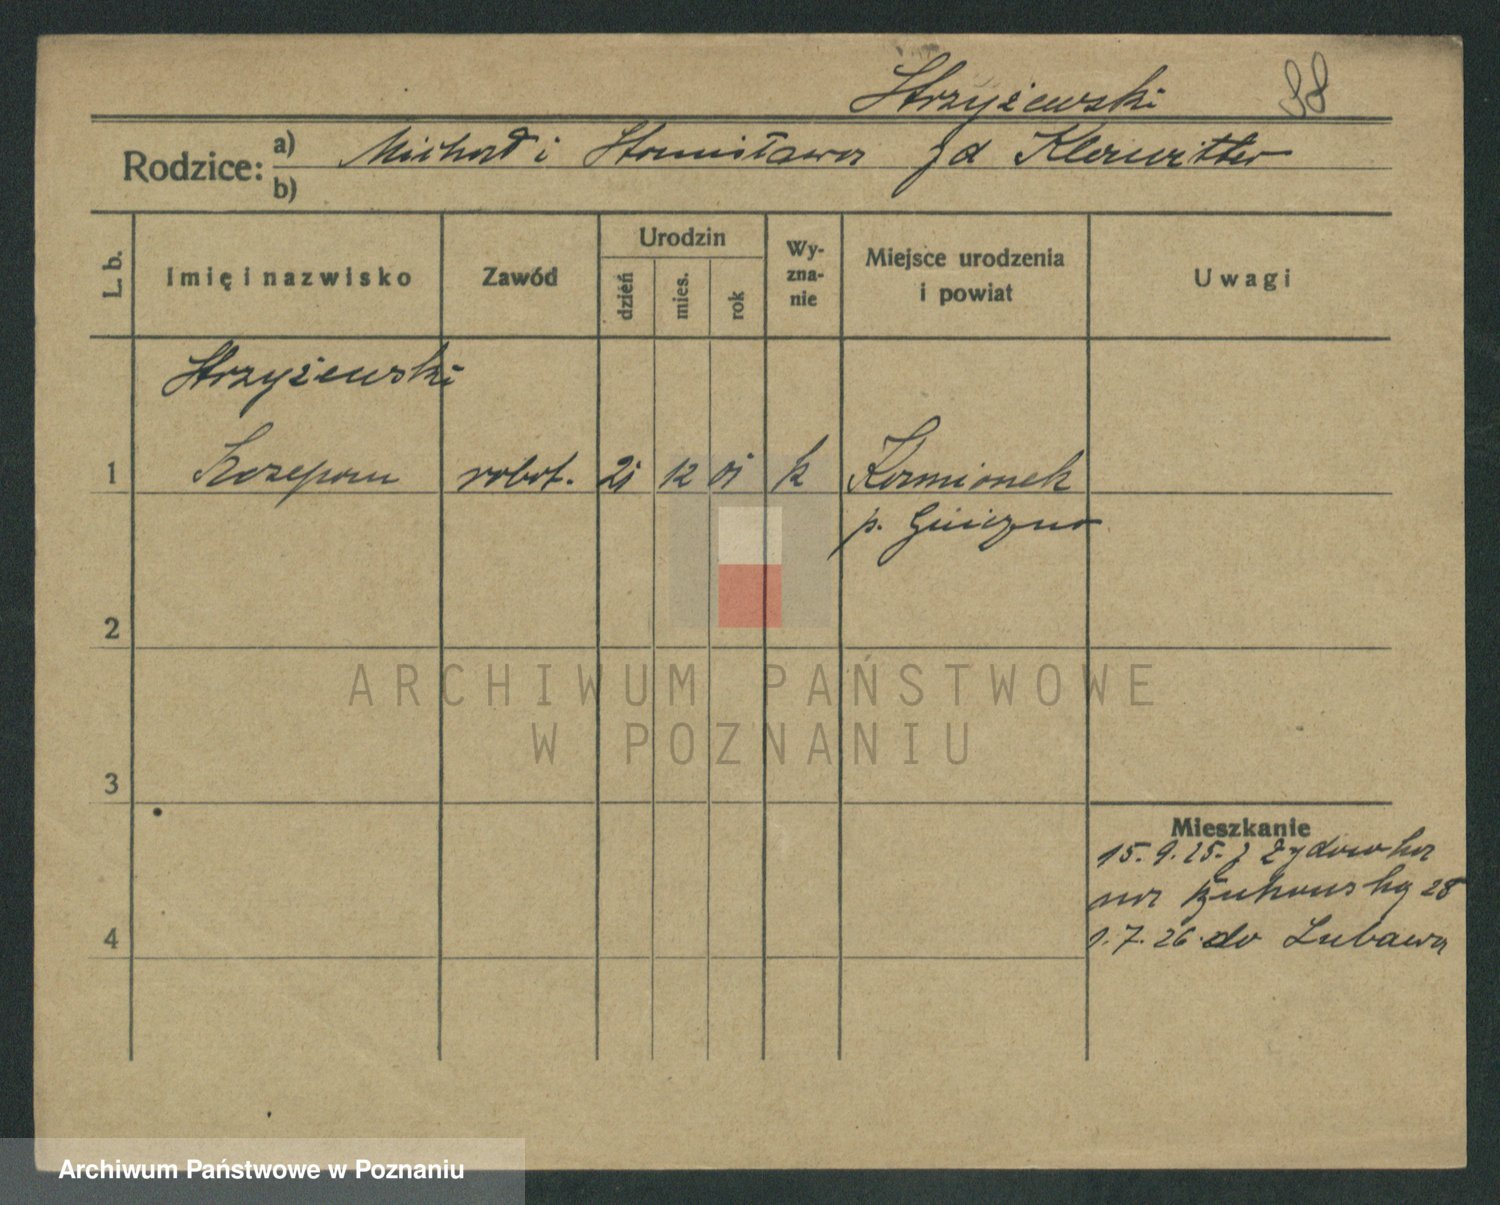 Strzyżewski 98
Rodzice: a) Michał i Stanisława z d Klawitter
b)
L. b. Imię i nazwisko Zawód Urodzin dzień mies. rok Wyznanie Miejsce urodzenia i powiat Uwagi
Strzyżewski
1 Szczepan robot. 21 12 01 k Kamionek
p. Gniezno
2
ARCHIWUM PAŃSTWOWE
W POZNANIU
3
Mieszkanie
15. 9. 25. z Żydowska
na Bukowską 28
4 1. 7. 26 do Lubawa
Archiwum Państwowe w Poznaniu